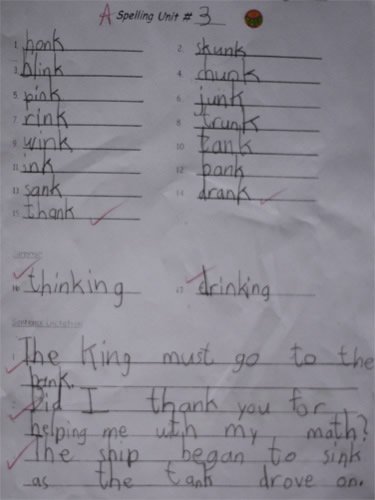 A Spelling Unit # 3
1. honk 2. skunk
3. blink 4. chunk
5. pink 6. junk
7. rink 8. trunk
9. wink 10. tank
11. ink 12. bank
13. sank 14. drank
15. thank
16. thinking 17. drinking
Sentence Dictation
1. The King must go to the
bank.
2. Did I thank you for
helping me with my math?
3. The ship began to sink
as the tank drove on.